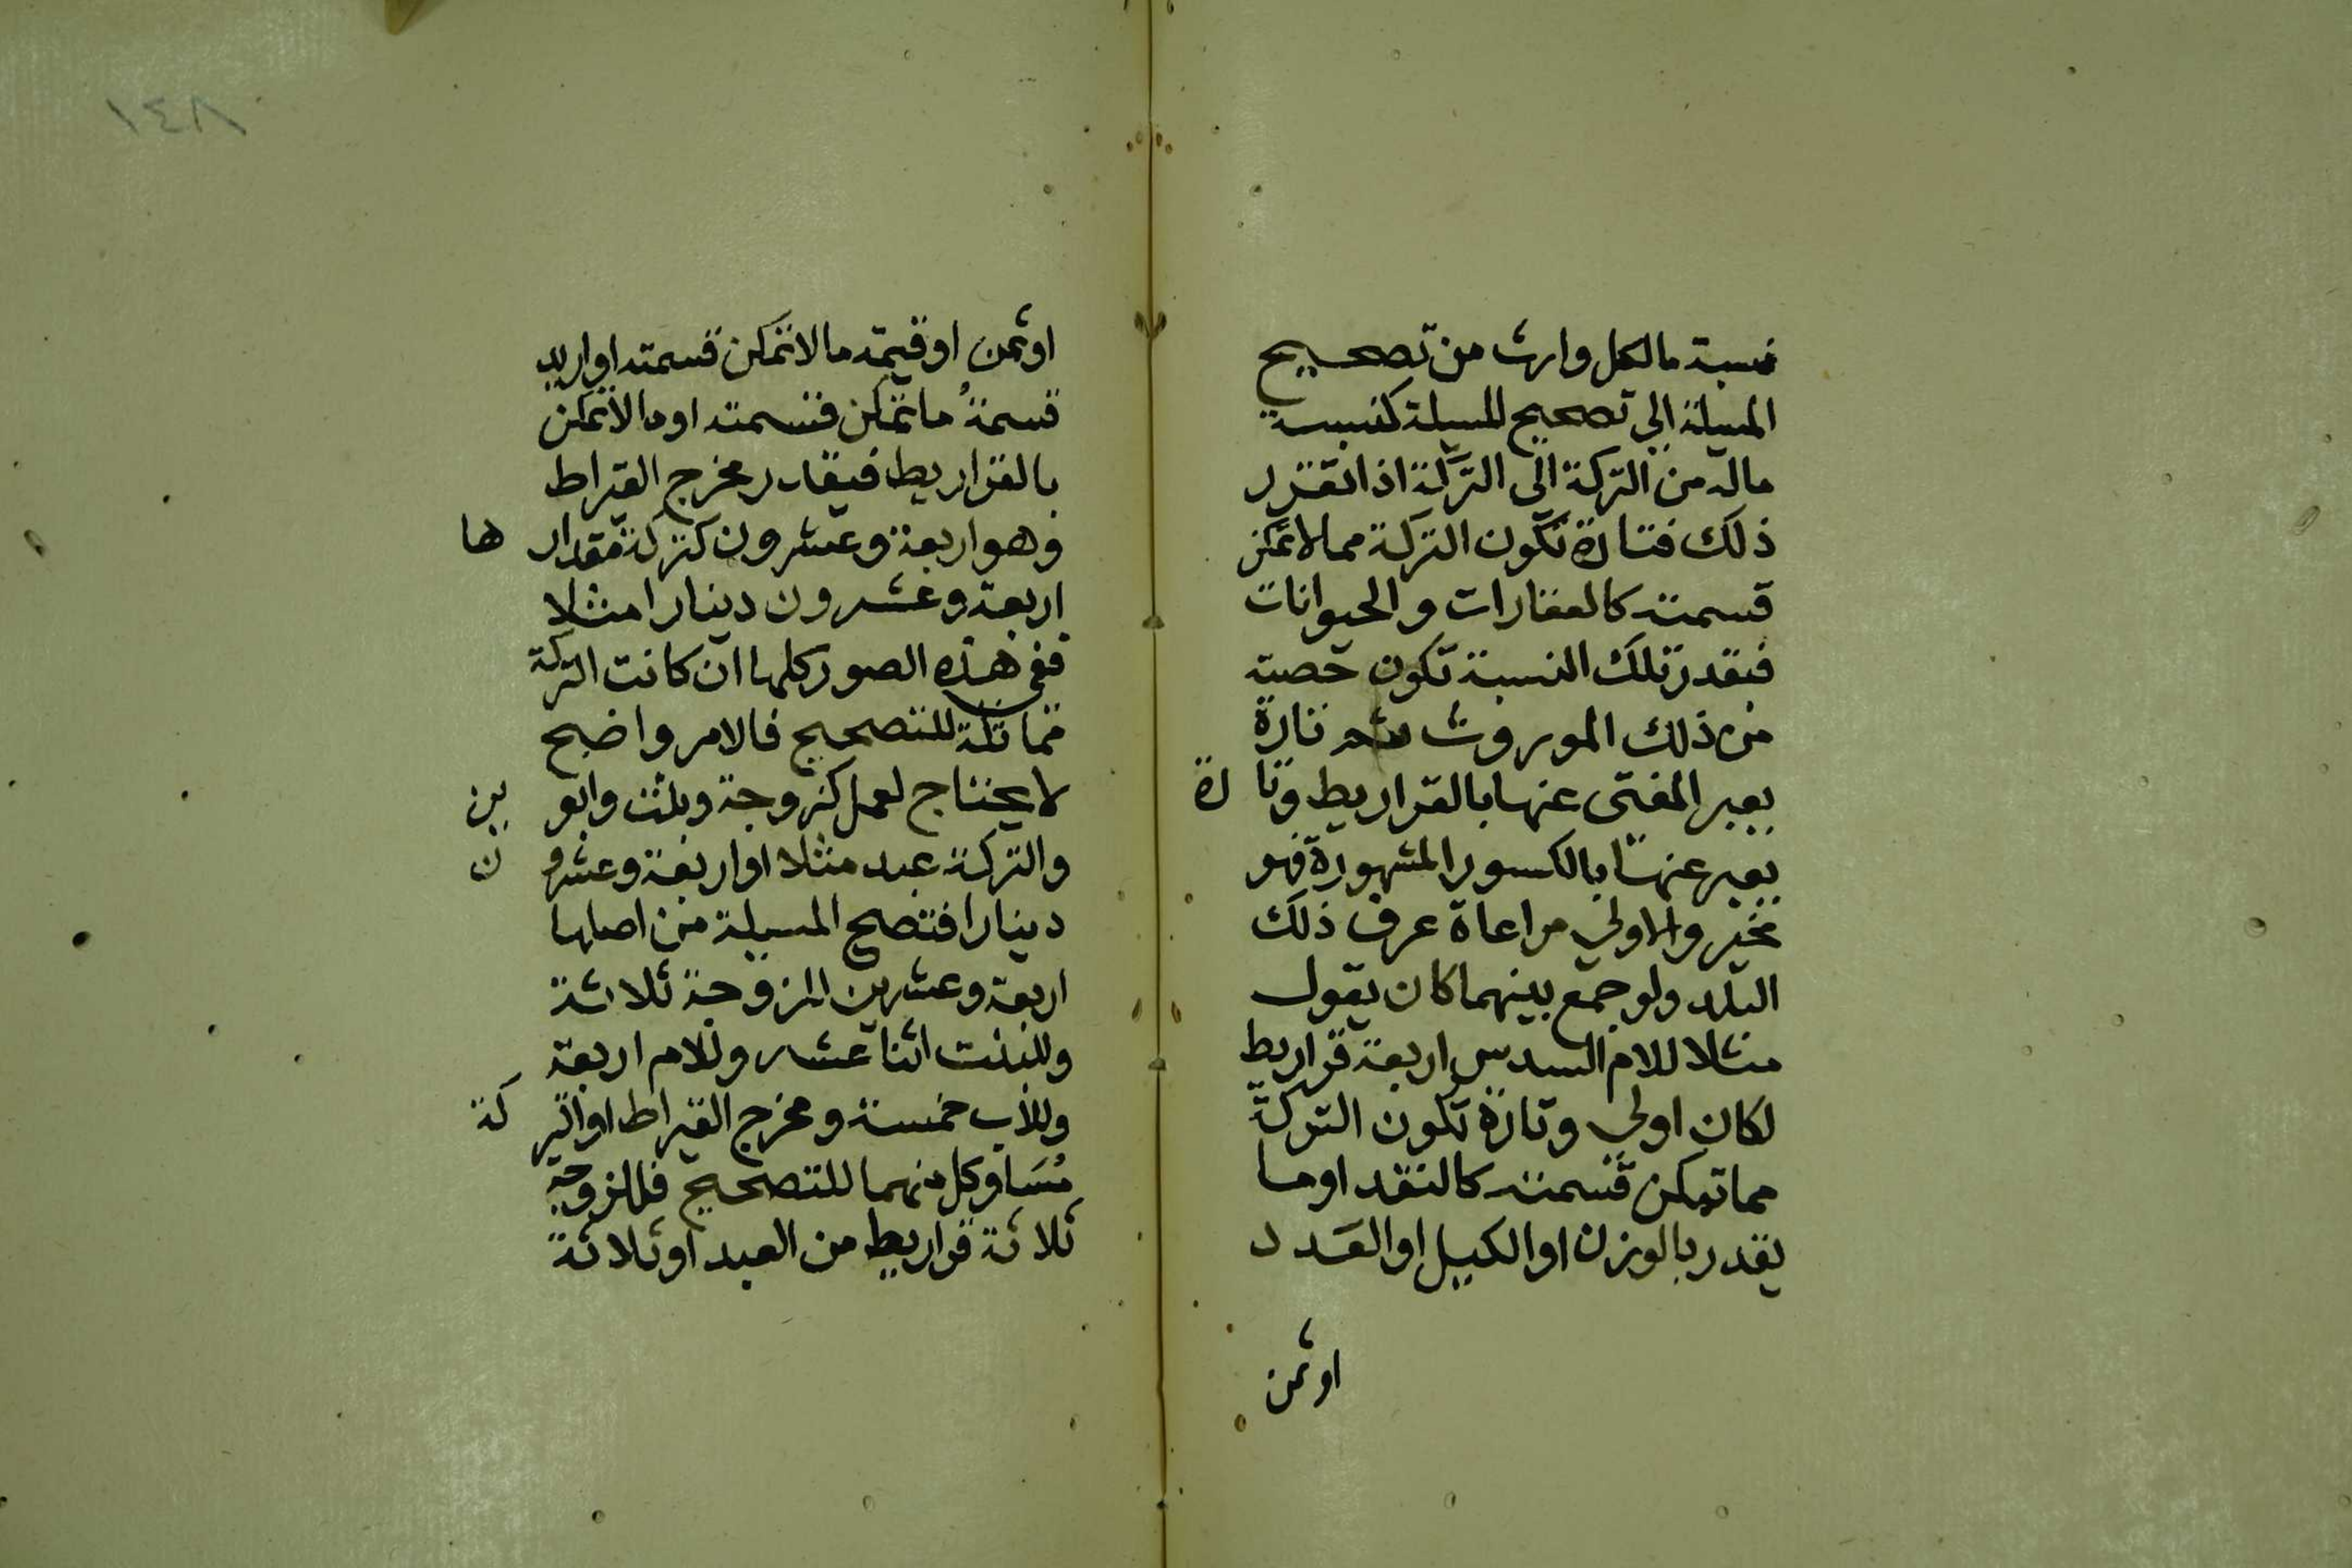 نسبة مالكل وارث من تصحيح
المسيلة الي تصحيح المسيلة كنسبة
ماله من التركة الى التركة اذا تقرر
ذلك فتارة تكون التركة مما لا تمكن
قسمته كالعقارات والحيوانات
فبقدر تلك النسبة تكون حصته
من ذلك الموروث ثم تارة
يعبر المفتى عنها بالقراريط وتارة
يعبر عنها بالكسور المشهورة فهو
مخير والاولي مراعاة عرف ذلك
البلد ولو جمع بينهما كان يقول
مثلا للام السدس اربعة قراريط
لكان اولي وتارة تكون التركة
مما تمكن قسمته كالنقد او ما
يقدر بالوزن او الكيل او العدد
اوثمن
١٤٨
اوثمن او قيمة مالا تمكن قسمته او اريد
قسمةُ ما تمكن قسمته او مالا تمكن
بالقراريط فيقدر مخرج القيراط
وهو اربعة وعشرون كتركة مقدارها
اربعة وعشرون دينارا مثلا
ففي هذه الصور كلها ان كانت التركة
مماثلة للتصحيح فالامر واضح
لا يحتاج لعمل كزوجة وبنت وابوين
والتركة عبد مثلا او اربعة وعشرون
دينارا فتصح المسيلة من اصلها
اربعة وعشرين للزوجة ثلاثة
وللبنت اثنا عشر وللام اربعة
وللاب خمسة ومخرج القيراط او التركة
مُسَاو كل منهما للتصحيح فللزوجة
ثلاثة قراريط من العبد او ثلاثة